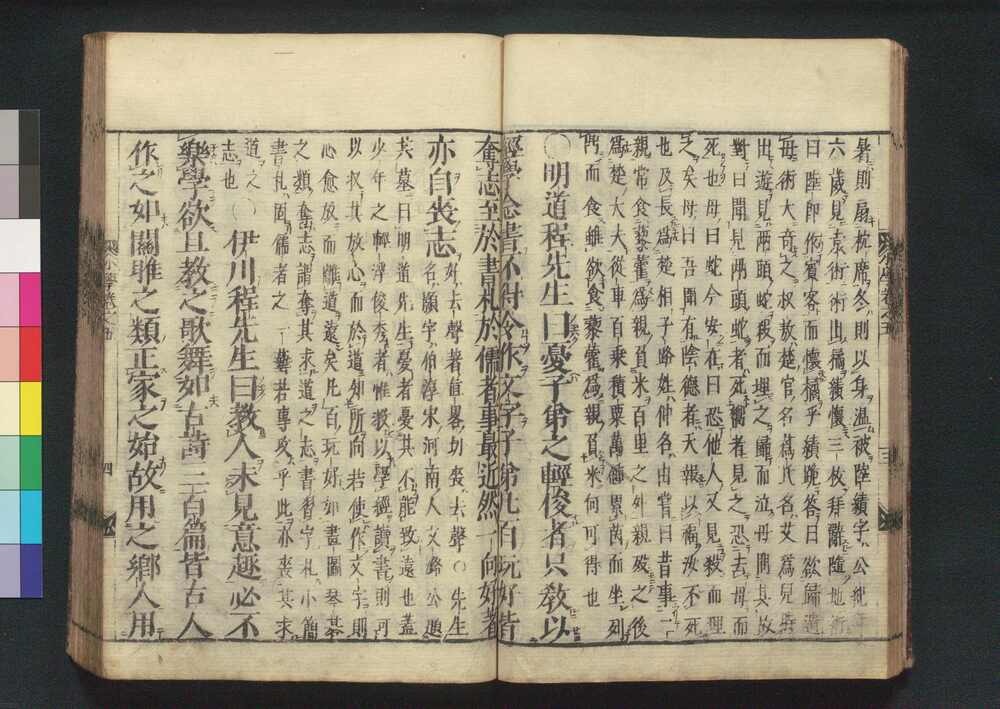 暑則扇枕席冬則以身温被陸績字公紀年
六歳見袁術術出橘績懷三枚拜辭墮地術
曰陸郎作賓客而懷橘乎績跪答曰欲歸遺
母術大奇之叔敖楚官名蔿氏名艾爲兒時
出遊見兩頭蛇殺而埋之歸而泣母問其故
對曰聞見兩頭蛇者死嚮者見之恐去母而
死也母曰蛇今安在曰恐他人又見殺而埋
之矣母曰吾聞有陰德者天報以福汝不死
也及長爲楚相子路姓仲名由嘗曰昔事二
親常食藜藿爲親負米百里之外親歿之後
爲楚大夫從車百乘積粟萬鍾累茵而坐列
鼎而食雖欲食藜藿爲親負米何可得也
〇明道程先生曰憂子弟之輕俊者只敎以
經學念書不得令作文字子弟凡百玩好皆
奪志至於書札於儒者事最近然一向好著
亦自喪志
好去聲著直畧切喪去聲〇先生
名顥字伯淳宋河南人文潞公題
其墓曰明道先生憂者憂其不能致遠也蓋
少年之輕浮俊秀者惟敎以學經讀書則可
以收其放心而於道知所向若使作文字則
心愈放而離道遠矣凡百玩好如畫圖琴棊
之類奪志謂奪其求道之志書習字札小簡
書札固儒者之一藝若專攻乎此亦喪其求
道之
志也
〇伊川程先生曰敎人未見意趣必不
樂學欲且敎之歌舞如古詩三百篇皆古人
作之如關雎之類正家之始故用之鄕人用
小學卷之五
三
四